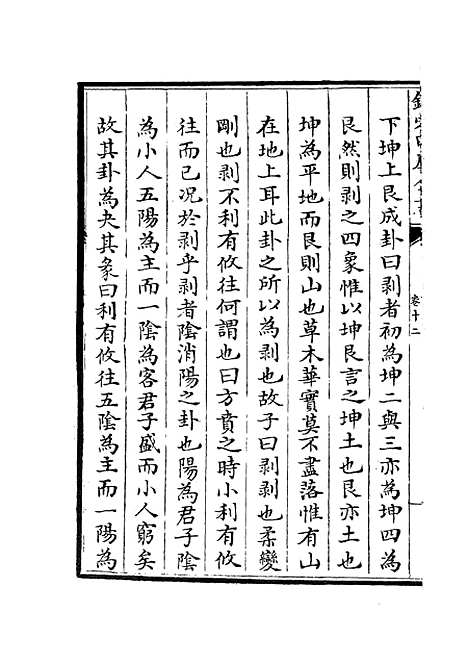 下坤上艮成卦曰剥者初為坤二與三亦為坤四為
艮然則剥之四象惟以坤艮言之坤土也艮亦土也
坤為平地而艮則山也草木華實莫不盡落惟有山
在地上耳此卦之所以為剥也故子曰剥剥也柔變
剛也剥不利有攸往何謂也曰方賁之時小利有攸
往而已况於剥乎剥者陰消陽之卦也陽為君子陰
為小人五陽為主而一陰為客君子盛而小人窮矣
故其卦為夬其彖曰利有攸往五陰為主而一陽為
卷十二